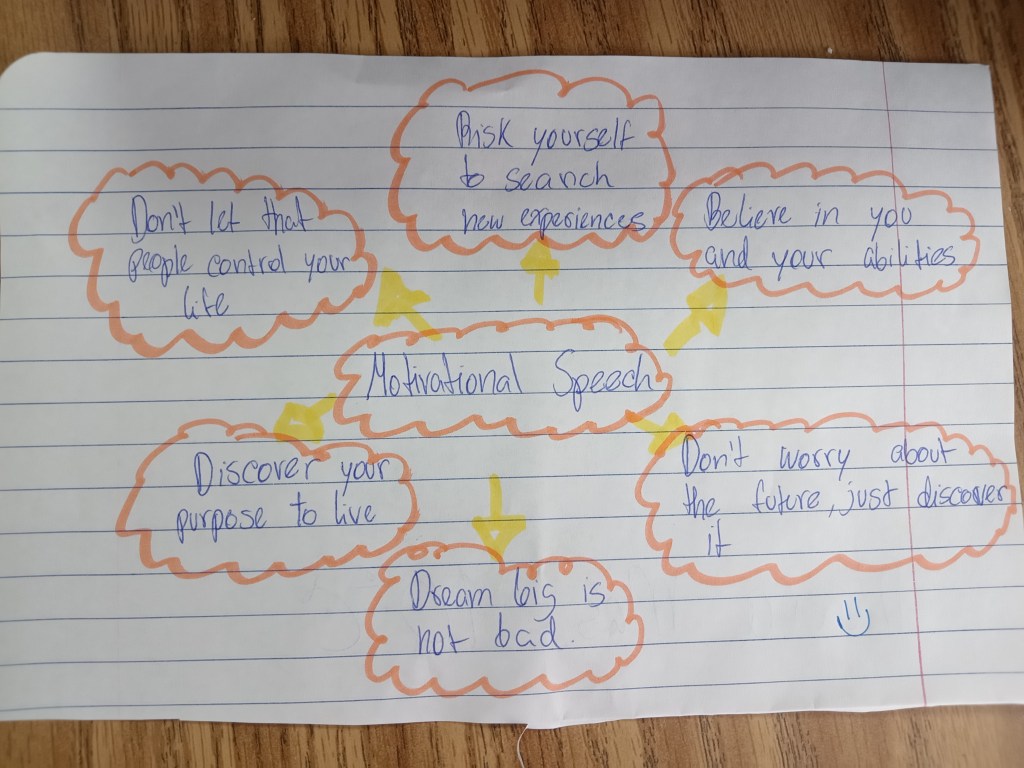 Risk yourself
to search
new experiences
Don't let that
people control your
life
Believe in you
and your abilities
Motivational Speech
Discover your
purpose to live
Don't worry about
the future, just discover
it
Dream big is
not bad.